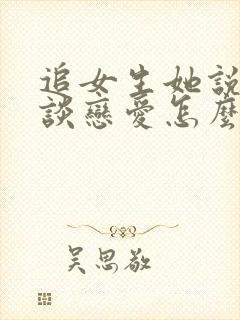 追女生她說
談戀愛怎麼
吳思敬